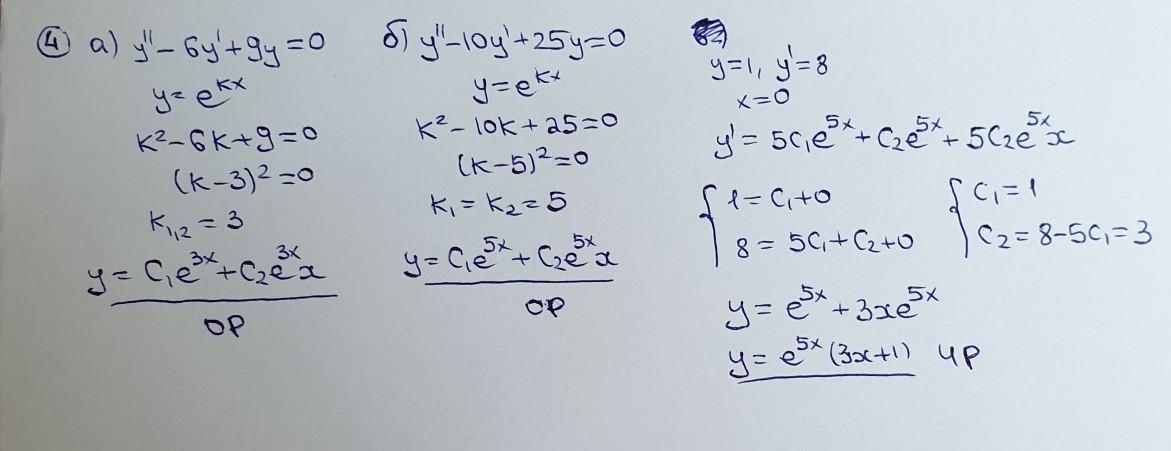 ④ а) y''-6y'+9y=0
y=e^{kx}
k²-6k+9=0
(k-3)²=0
k₁,₂=3
y=C₁e^{3x}+C₂e^{3x}x
ОР
б) y''-10y'+25y=0
y=e^{kx}
k²-10k+25=0
(k-5)²=0
k₁=k₂=5
y=C₁e^{5x}+C₂e^{5x}x
ОР
y=1, y'=8
x=0
y'=5C₁e^{5x}+C₂e^{5x}+5C₂e^{5x}x
{ 1=C₁+0 { C₁=1
8=5C₁+C₂+0 C₂=8-5C₁=3
y=e^{5x}+3xe^{5x}
y=e^{5x}(3x+1) ЧР